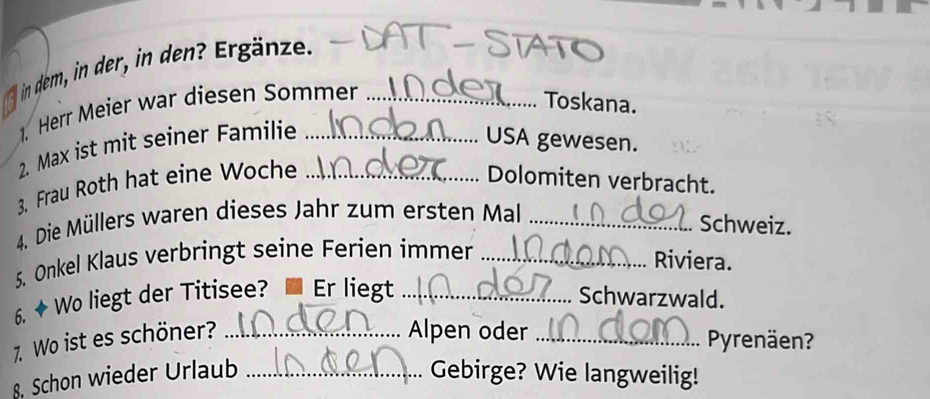 16 in dem, in der, in den? Ergänze. - DAT - STATO
1. Herr Meier war diesen Sommer in der Toskana.
2. Max ist mit seiner Familie in den USA gewesen.
3. Frau Roth hat eine Woche in der Dolomiten verbracht.
4. Die Müllers waren dieses Jahr zum ersten Mal in der Schweiz.
5. Onkel Klaus verbringt seine Ferien immer in dem Riviera.
6. ✦ Wo liegt der Titisee? ■ Er liegt in der Schwarzwald.
7. Wo ist es schöner? in den Alpen oder in dem Pyrenäen?
8. Schon wieder Urlaub in den Gebirge? Wie langweilig!